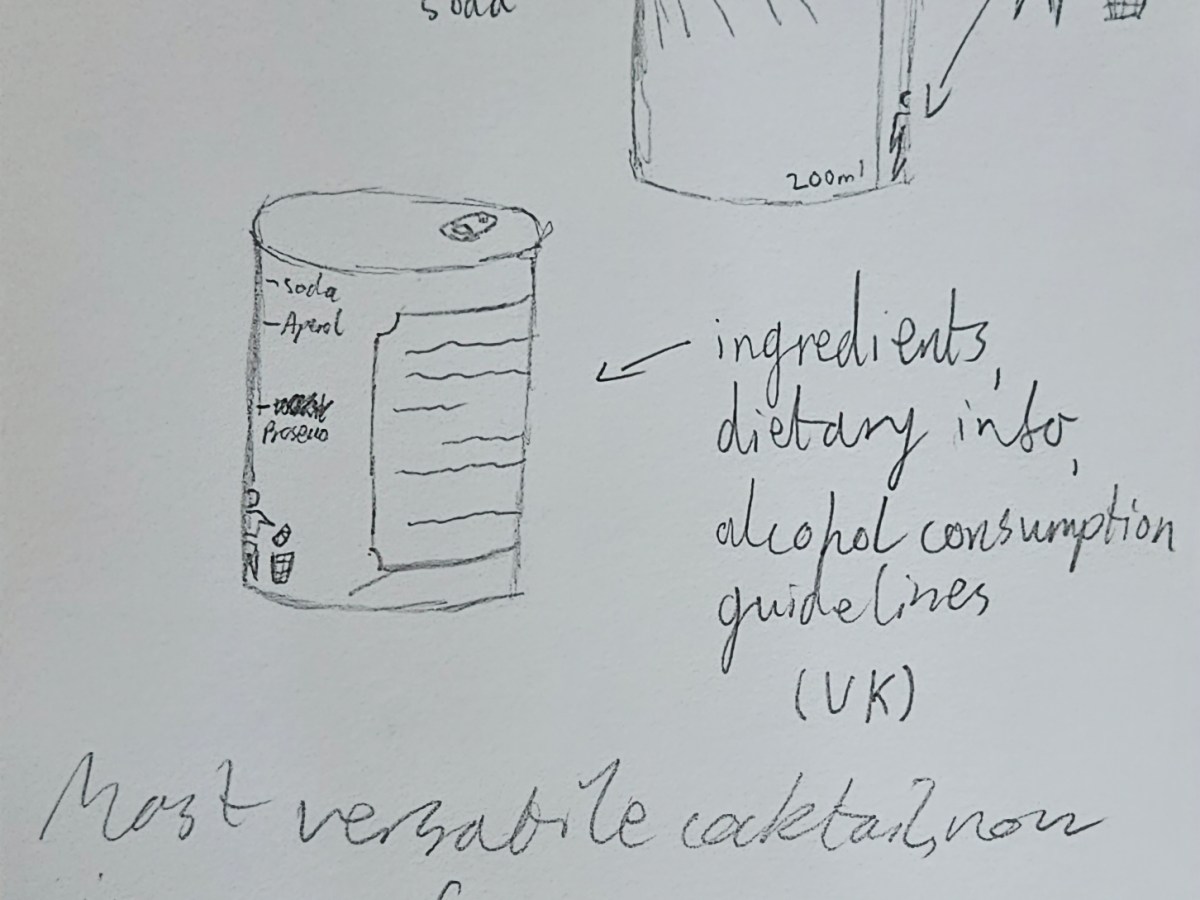 soda
200ml
- soda
- Aperol
Proseuo
ingredients,
dietary info,
alcohol consumption
guidelines
(UK)
Most versatile cocktail, now